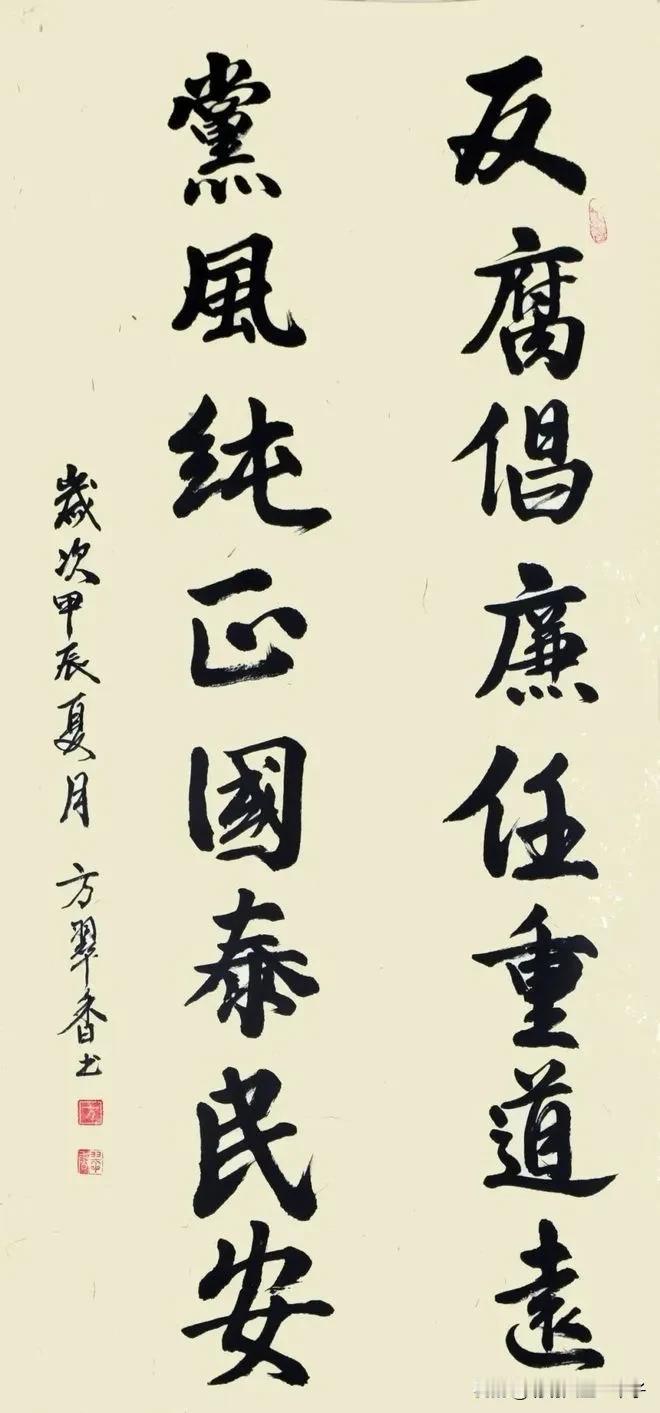 反腐倡廉任重道遠
黨風純正國泰民安
歲次甲辰夏月 方翠香书